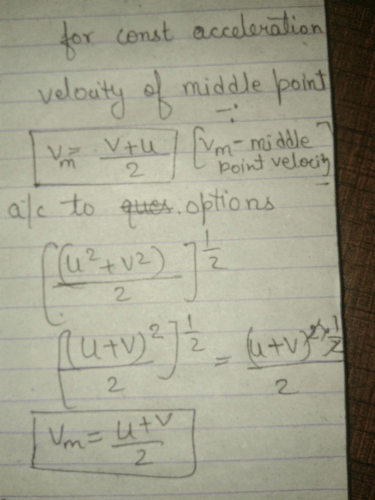 for const acceleration
velocity of middle point :-
Vm = V+u/2 [Vm - middle point velocity]
a/c to ques. options
[(u²+v²)/2]^1/2
[(u+v)²/2]^1/2 = (u+v)^2×1/2 / 2
Vm = u+v/2